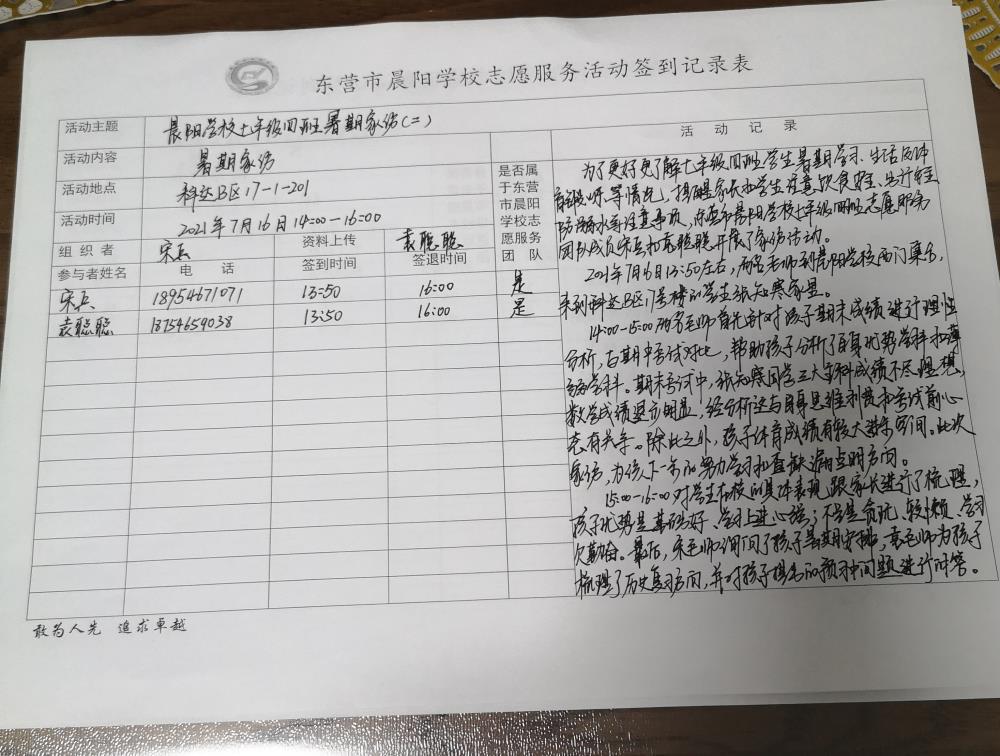 东营市晨阳学校志愿服务活动签到记录表
活动主题 晨阳学校七年级四班暑期家访(二)
活动内容 暑期家访
活动地点 科达B区17-1-201
活动时间 2021年7月16日14:00-16:00
组织者 宋兵 资料上传 袁聪聪
是否属于东营市晨阳学校志愿服务团队
参与者姓名 电话 签到时间 签退时间
宋兵 18954671071 13:50 16:00 是
袁聪聪 18754659038 13:50 16:00 是
活动记录
为了更好地了解七年级四班学生暑期学习、生活及体
育锻炼等情况,提醒家长和学生注意饮食安全、出行安全、
防溺水等注意事项,东营市晨阳学校七年级四班志愿服务
团队成员宋兵和袁聪聪开展了家访活动。
2021年7月16日13:50左右,两名老师到晨阳学校西门集合,
来到科达B区17号楼的学生张知寒家里。
14:00-15:00两名老师首先针对孩子期末成绩进行理性
分析,与期中考试对比,帮助孩子分析了自身优势学科和薄
弱学科。期末考试中,张知寒同学三大主科成绩不尽理想,
数学成绩退步明显,经分析这与自身思维习惯和考试前心
态有关乎。除此之外,孩子体育成绩有较大进步空间。此次
家访,为孩下一步的努力学习和查缺漏点明方向。
15:00-16:00对学生在校的具体表现跟家长进行了梳理,
孩子优势是基础好、学习上进心强;不足是贪玩、较懒、学习
欠勤奋。最后,宋老师询问了孩子暑期安排,袁老师为孩子
梳理了历史复习方向,并对孩子提出的预习中问题进行问答。
敢为人先 追求卓越